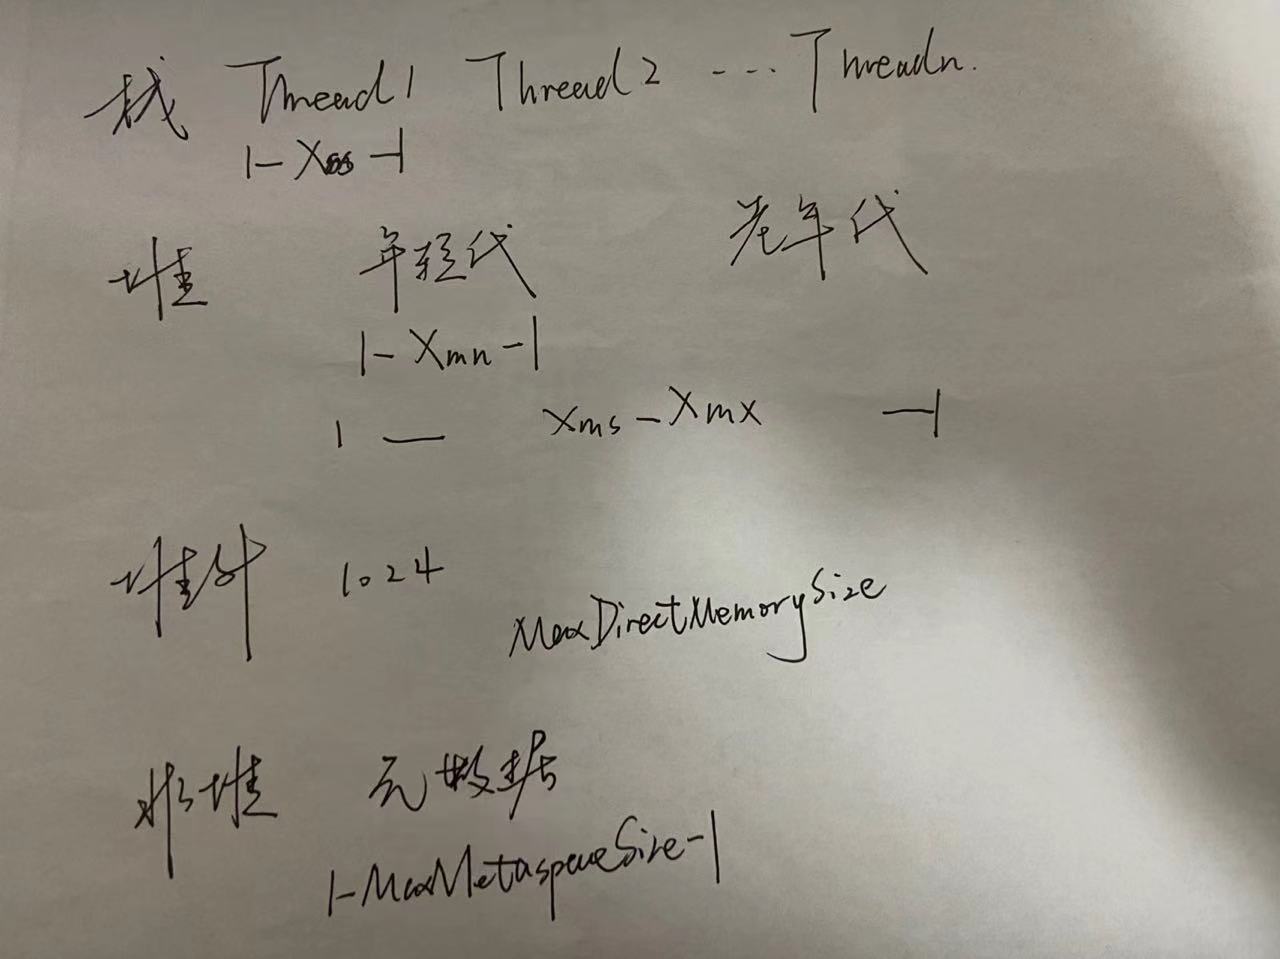 栈 Thread1 Thread2 ... Threadn.
|- Xss -|
堆 年轻代 老年代
|- Xmn -|
| — Xms - Xmx —|
堆外 1024 MaxDirectMemorySize
非堆 元数据
|- MaxMetaspaceSize -|